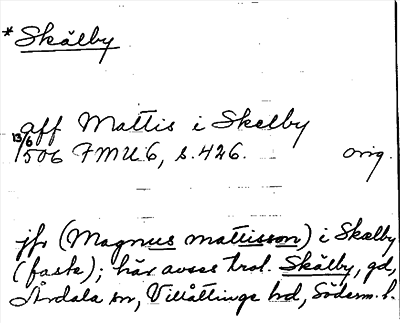 * Skälby
aff Mattis i Skelby
13/6
1506 FMU 6, s. 426. orig.
jfr (Magnus mattisson) i Skælby
(faste); här avses trol. Skälby, gd,
Årdala sn, Villåttinge hd, Söderm. l.